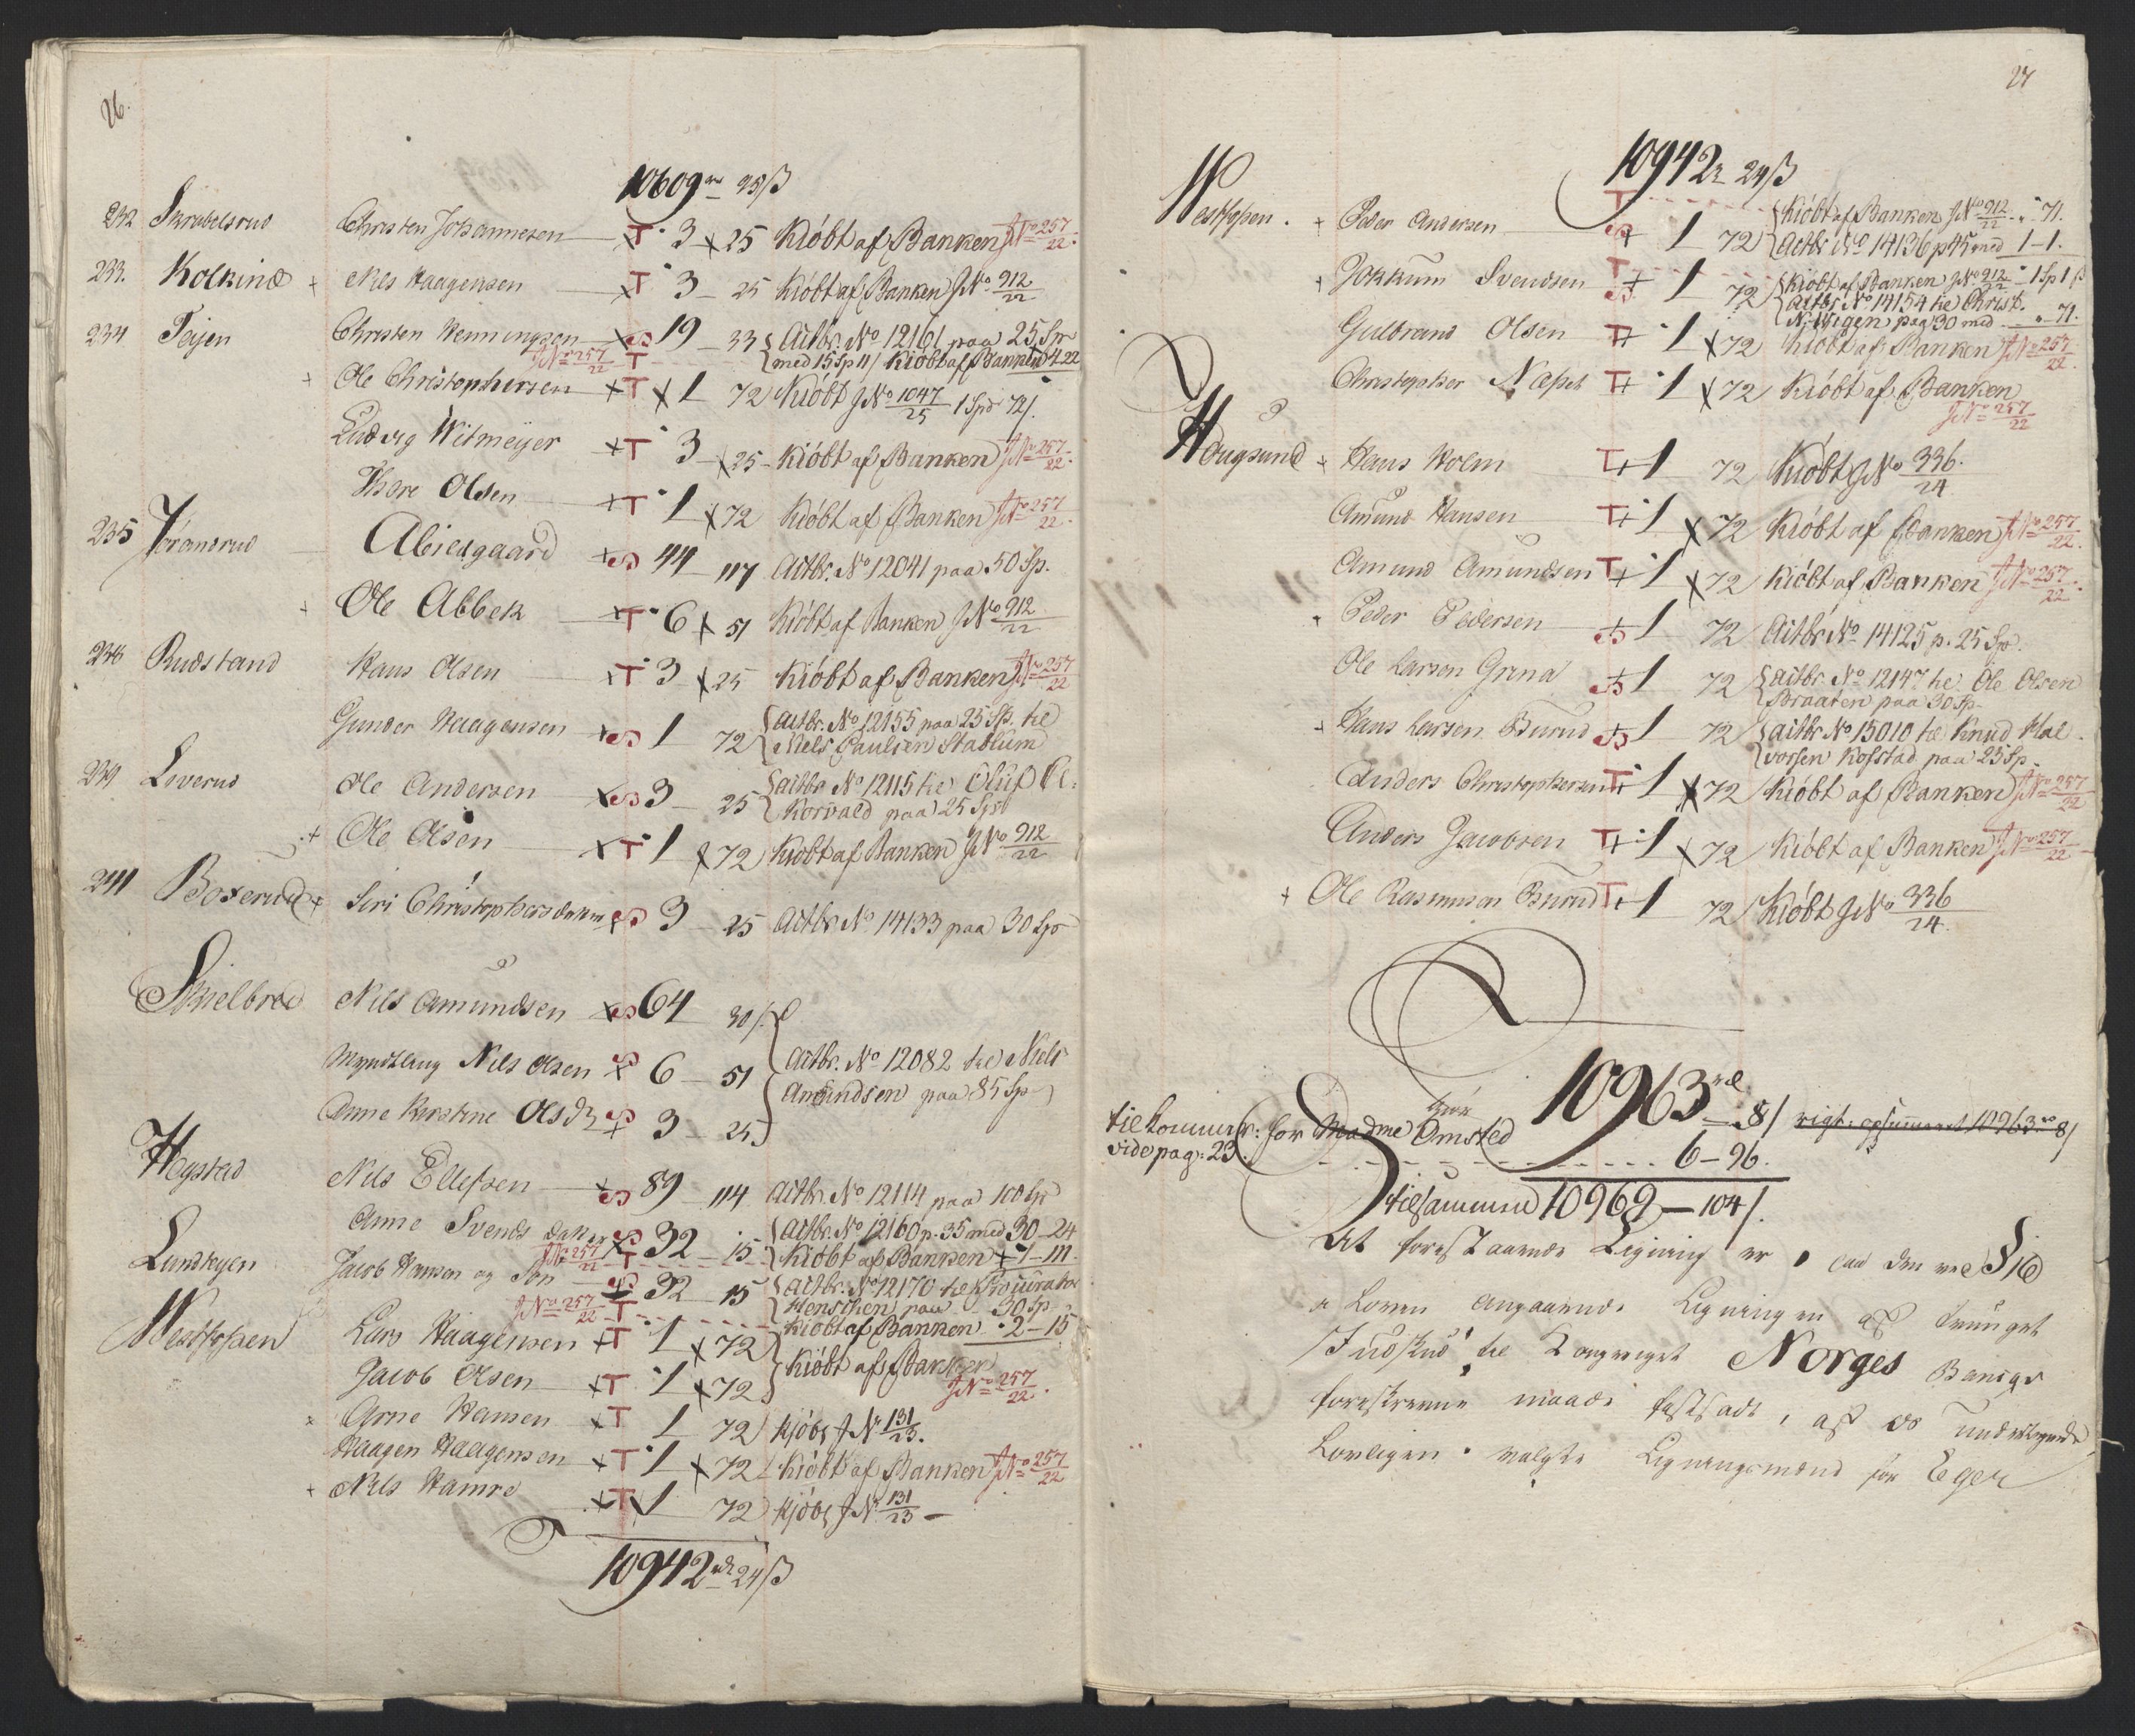 26.
10609 25 ß
232 Skrabelsrud Christen Johannesen T 3 25 Kiöbt af Banken J No 257/22.
233. Kolkind + Nils Haagensen T 3 - 25 Kiöbt af Banken J No 912/22
234 Teijen Christen Henningsen S 19 - 33 { Actbr. No 12161 paa 25 Sp
J No 257/22 T { med 15 Sp 11 / Kiöbt af Banken 4.22
+ Ole Christophersen T 1 72 Kiöbt J No 1047/25 1 Spd 72 /.
Ludvig Witmeyer T 3 - 25 - Kiöbt af Banken J No 257/22.
Thore Olsen T 1 72 Kiöbt af Banken J No 257/22.
235 Jöransrud Abiergaard S 44 - 117 Actbr. No 12041 paa 50 Sp.
+ Ole Abbek T 6 51 Kiöbt af Banken J No 912/22
236 Rudstand Hans Olsen T 3 25 Kiöbt af Banken J No 257/22
Gunder Haagensen S 1 72 { Actbr. No 12155 paa 25 Sp. til
Niels Paulsen Stablum
239 Loverud Ole Andersen S 3 - 25 { actbr No 12115 til Oluf
Korvald paa 25 Sp
+ Ole Olsen T 1 72 Kiöbt af Banken J No 912/22
241 Boxerud + Siri Christophersdatter S 3 - 25 Actbr. No 14133 paa 30 Sp
Skielbred Nils Amundsen S 64 30 /.
Nils Olsen S 6 - 51 { Actbr. No 12082 til Niels
Amundsen paa 85 Sp
Anne Kirstine Olsd S 3 - 25
Hegstad Nils Ellefsen S 89 - 114 Actbr. No 12114 paa 100 Sp
Anne Svends datter S 32 - 15 { Actbr. No 12160 p. 35 med 30 - 24
J No 257/22 T { Kiöbt af Banken 1 - 111
Jacob Hansen og Sön S 32 15 { actbr. No 12170 til Procurator
Henschen paa 30 Sp.
J No 257/22 T Kiöbt af Banken 2 - 15
Westfossen Lars Haagensen T 1 72
Jacob Olsen T 1 72 } Kiöbt af Banken
J No 257/22.
Arne Hansen T 1 72 kjöbt J N 131/23.
Haagen Haagensen T 1 72 Kiöbt af Banken J No 257/22
+ Nils Hamre T 1 72 kjöbt J N 131/23 -
10942 24 ß
27
10942 24 ß
Westfossen. + Peder Andersen T S 1 72 { Kiöbt af Banken J No 912/22 " 71.
Actbr. No 14136 p 45 med 1 - 1.
+ Jokkum Svendsen T S 1 72 { Kiöbt af Banken J No 912/22 - 1 Sp 1 ß
actbr No 14154 til Christ.
N. Wigen pag 30 med " 71.
Gulbrand Olsen T 1 72 Kiöbt af Banken J No 257/22.
Christopher Næss T 1 72 Kiöbt af Banken
J No 257/22
Hougsund + Hans Holm T 1 72 Kiöbt J No 336/24.
Amund Hansen T 1 72 Kiöbt af Banken J No 257/22.
Amund Amundsen T 1 72 Kiöbt af Banken J No 257/22.
Peder Pedersen S 1 72 Actbr No 14125 p. 25 Sp.
Ole Larsen Grina S 1 72 { actbr. No 12147 til Ole Olsen
Braaten paa 30 Sp.
+ Hans Larsen Burud S 1 72 { actbr No 15010 til Knud Hal
vorsen Kofstad paa 25 Sp.
Anders Christophersen T 1 72 Kiöbt af Banken J No 257/22
Anders Jacobsen T 1 72 Kiöbt af Banken J No 257/22
+ Ole Rasmussen Burud T 1 72 Kiöbt J No 336/24.
10963 - 8 / rigt. opsummert 10963 8 /
tilkommer: for Madme Omsted
vide pag: 23. 6 - 96.
tilsammen 10969 - 104 /.
At forestaaende Ligning er paa den ved § 16
i Loven angaaende Ligningen af tvunget
Indskud til Kongeriget Norges Banigs
foreskrevne maade fastsadt, af os undertegnede
Lovligen valgte Ligningsmænd for Eger